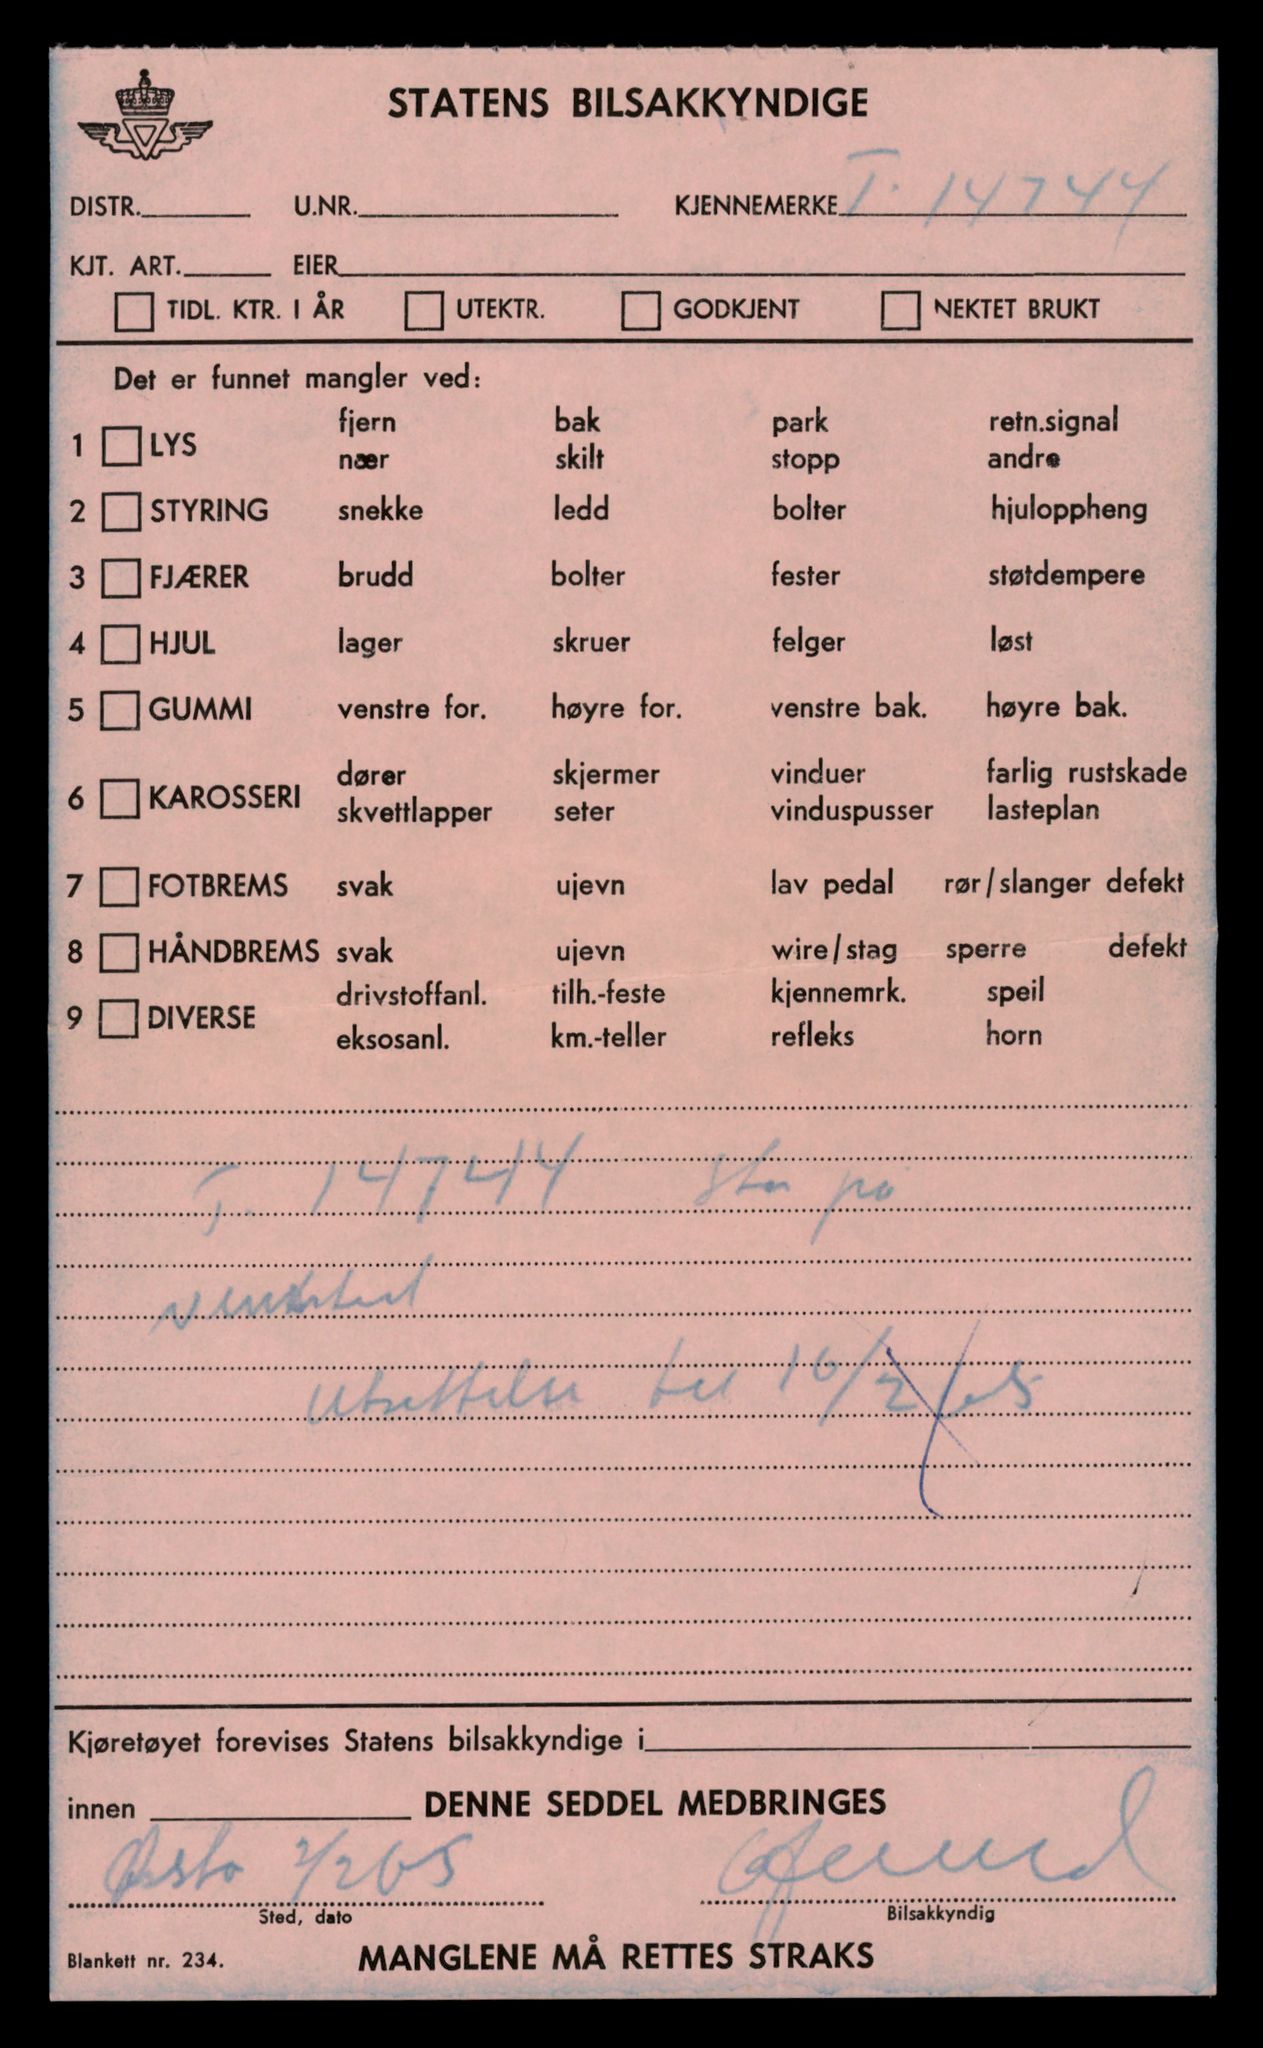 STATENS BILSAKKYNDIGE
DISTR. U.NR. KJENNEMERKE T. 14744
KJT. ART. EIER
TIDL. KTR. I ÅR UTEKTR. GODKJENT NEKTET BRUKT
Det er funnet mangler ved:
1 LYS fjern bak park retn.signal
nær skilt stopp andre
2 STYRING snekke ledd bolter hjuloppheng
3 FJÆRER brudd bolter fester støtdempere
4 HJUL lager skruer felger løst
5 GUMMI venstre for. høyre for. venstre bak. høyre bak.
6 KAROSSERI dører skjermer vinduer farlig rustskade
skvettlapper seter vinduspusser lasteplan
7 FOTBREMS svak ujevn lav pedal rør/slanger defekt
8 HÅNDBREMS svak ujevn wire/stag sperre defekt
9 DIVERSE drivstoffanl. tilh.-feste kjennemrk. speil
eksosanl. km.-teller refleks horn
T. 14744 står på
verksted
Utsettelse til 16/2/65
Kjøretøyet forevises Statens bilsakkyndige i
innen DENNE SEDDEL MEDBRINGES
2/2 65
Sted, dato Bilsakkyndig
Blankett nr. 234. MANGLENE MÅ RETTES STRAKS